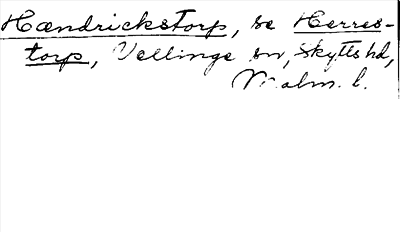 Hændrickstorp, se Herres-
torp, Vellinge sn, Skytts hd,
Malm. l.